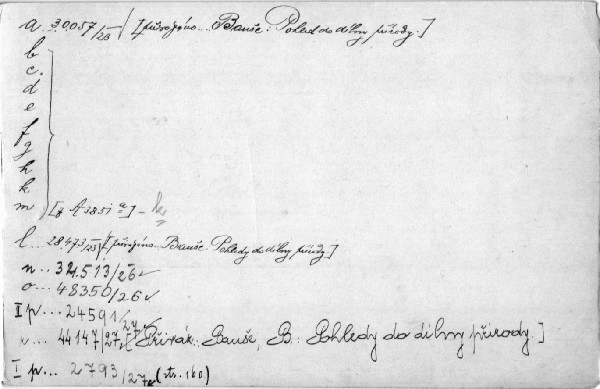 a...30.057/25 [připojeno... Bauše: Pohled do dílny přírody.]
b
c.
d
e
f
g
h
k
m [z A 385i a] -
l... 28473/25 [připojeno Bauše. Pohledy do dílny přírody]
n.. 32.513/26
o... 48350/26
I p... 24591
44147/27. [Přívaz: Bauše, B. Pohledy do dílny přírody.]
I p... 2793/27 (str. 160)